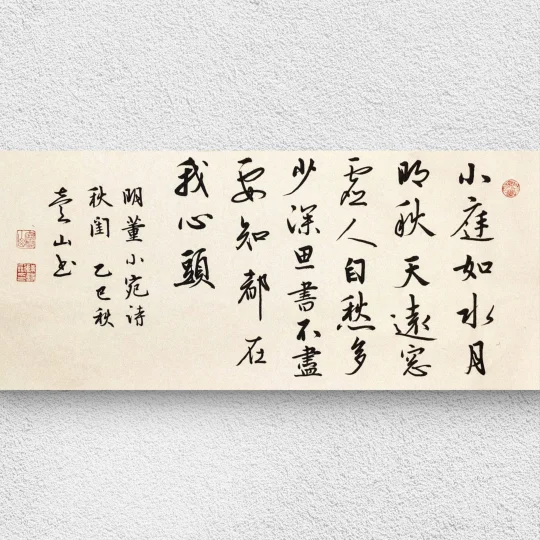 小庭如水月
明秋天遠窓
虛人自愁多
少深思書不盡
要知都在
我心頭
明董小宛诗
秋闺 乙巳秋
山书